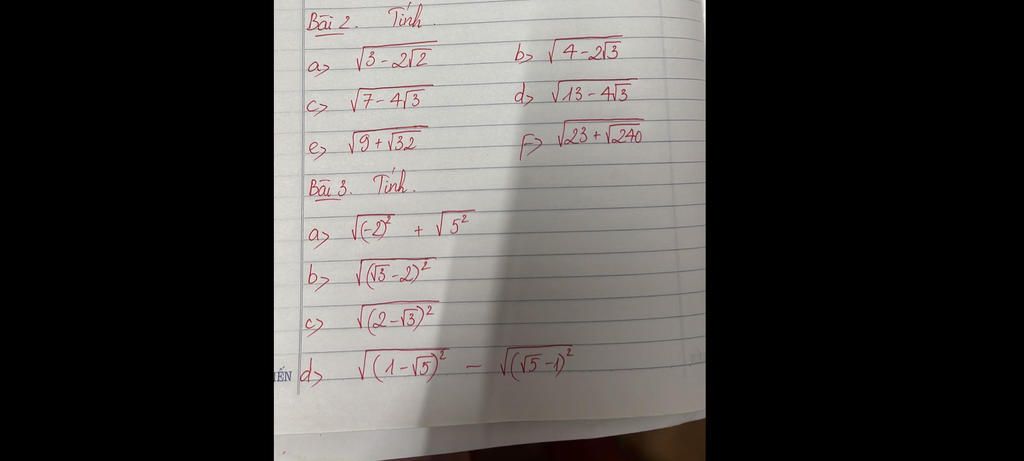 Bài 2. Tính.
a> √(3 - 2√2) b> √(4 - 2√3)
c> √(7 - 4√3) d> √(13 - 4√3)
e> √(9 + √32) f> √(23 + √240)
Bài 3. Tính.
a> √(-2)² + √5²
b> √(√3 - 2)²
c> √(2 - √3)²
IẾN d> √(1 - √5)² - √(√5 - 1)²